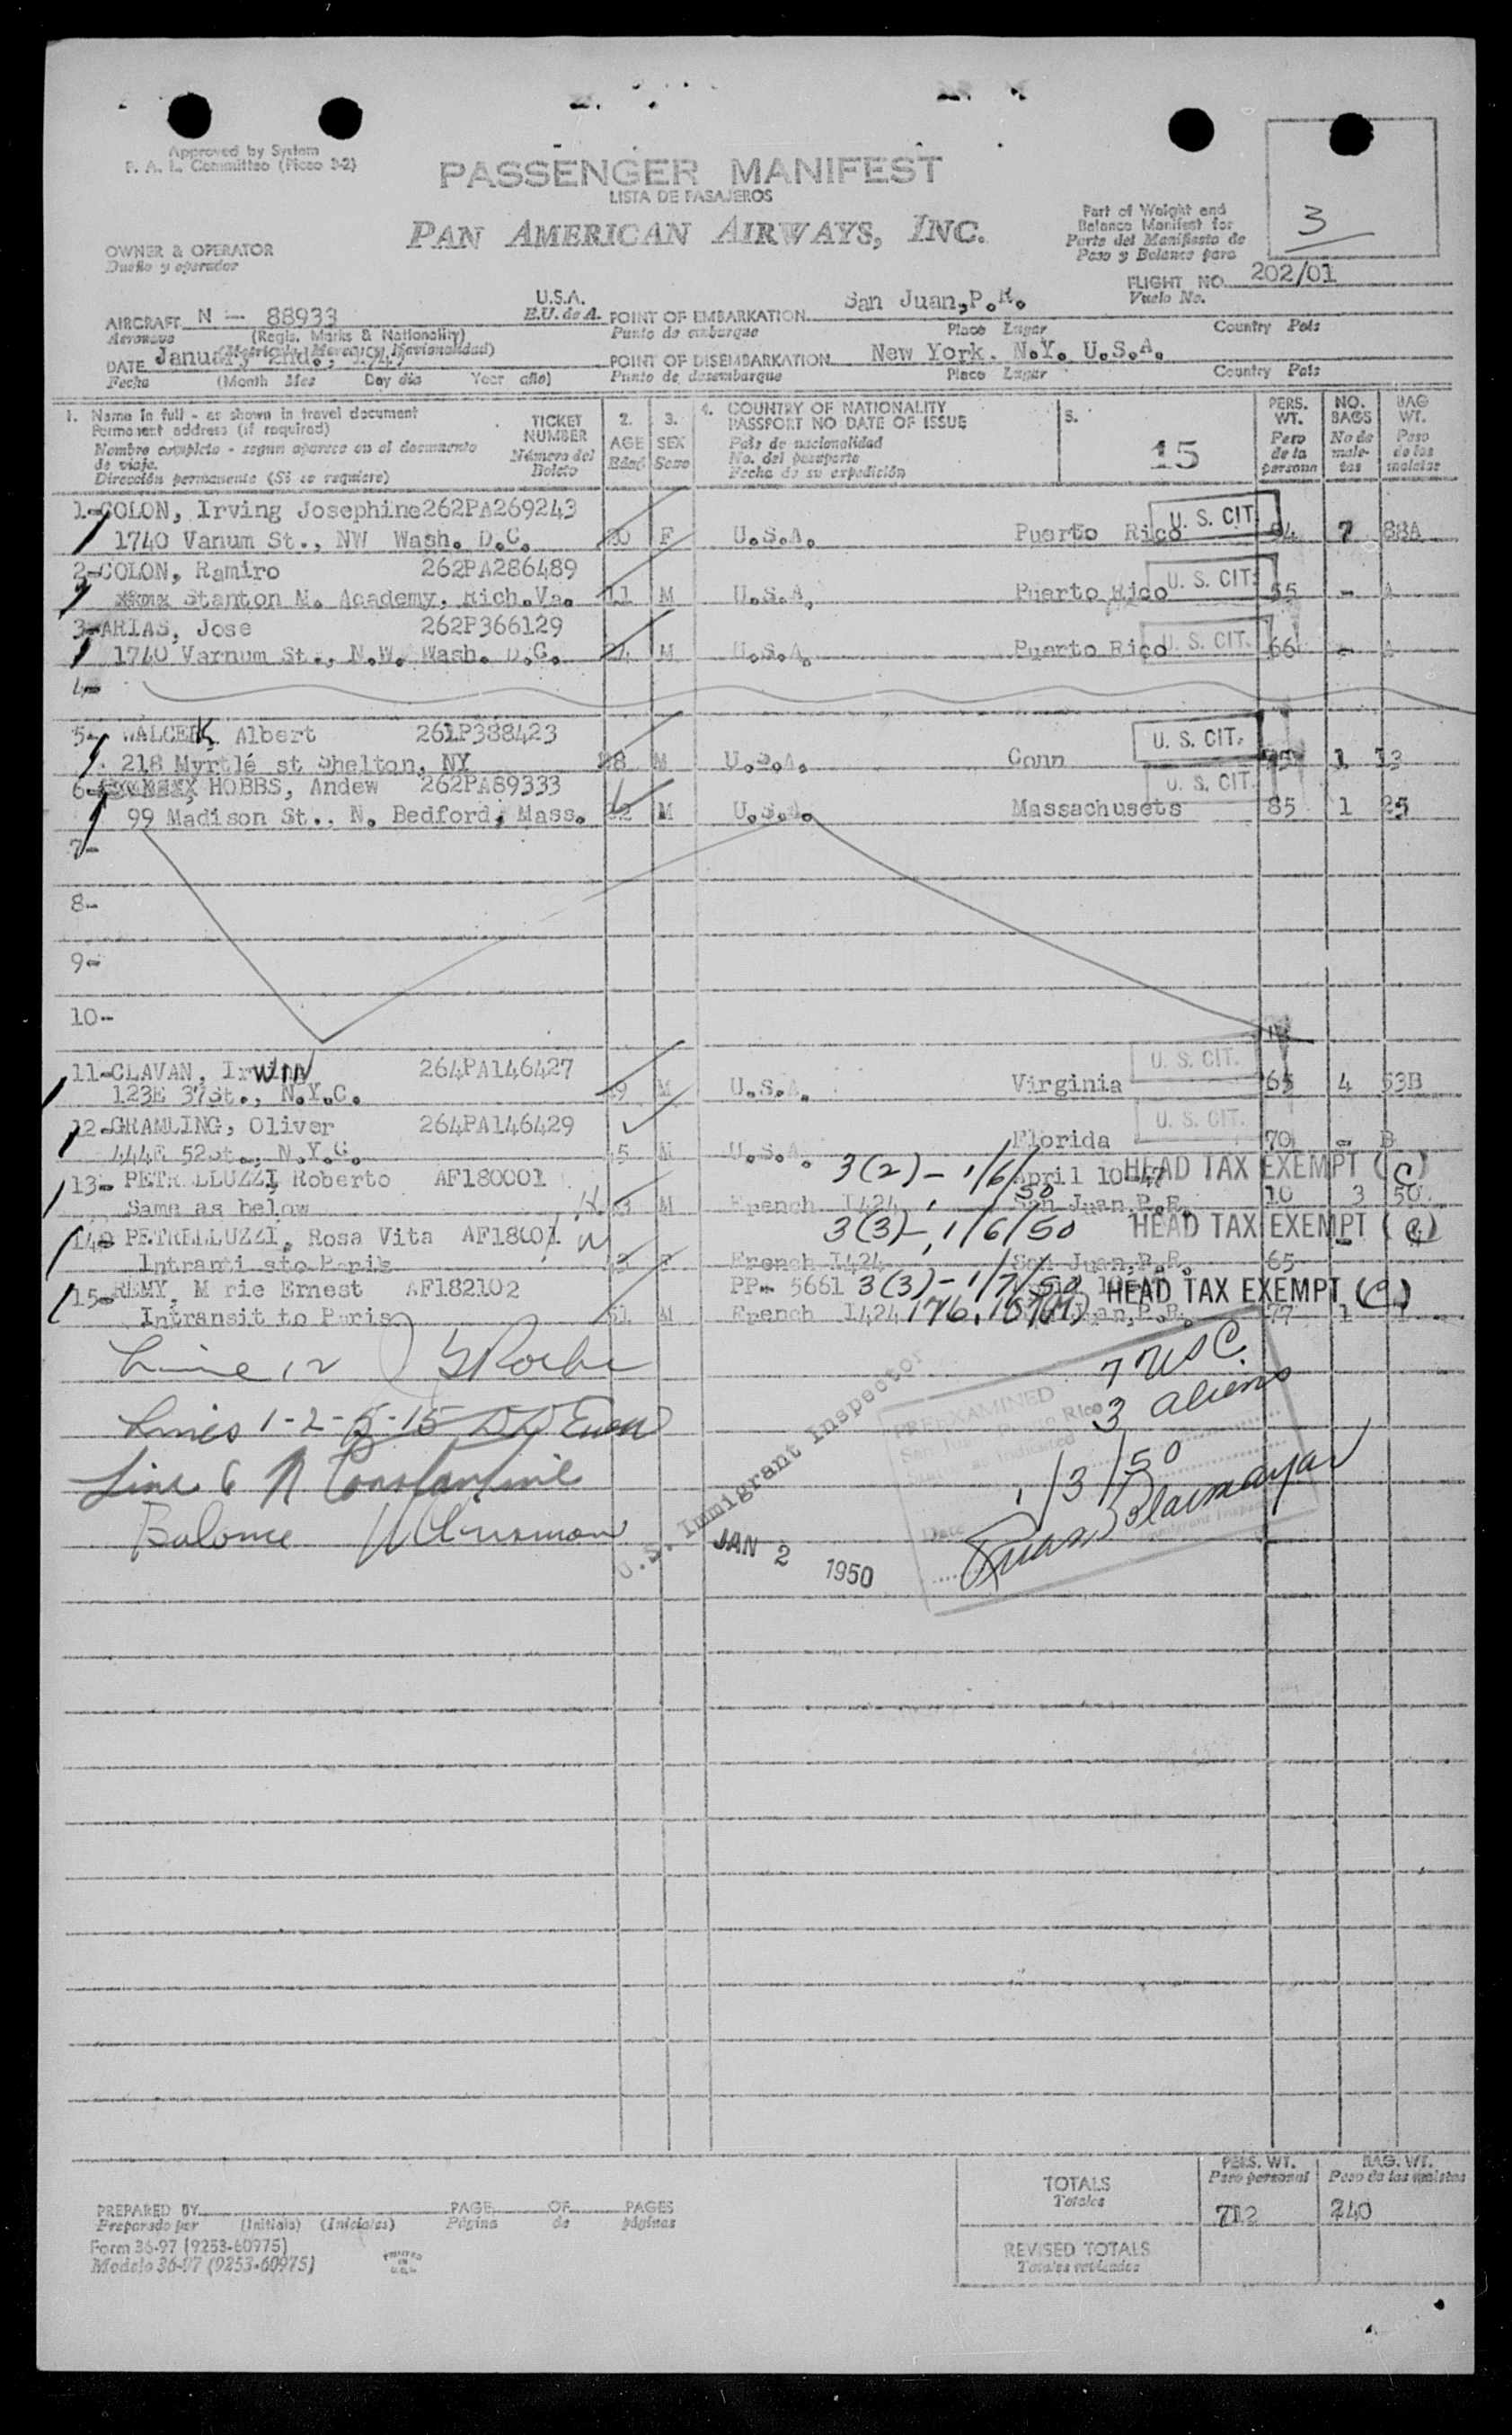 Approved by System
P. A. L. Committee (Piceo 3-2)
PASSENGER MANIFEST
LISTA DE PASAJEROS
PAN AMERICAN AIRWAYS, INC.
Part of Weight and
Balance Manifest for
Parte del Manifiesto de
Peso y Balance para
3
OWNER & OPERATOR
Dueño y operador
FLIGHT NO. 202/01
Vuelo No.
AIRCRAFT N - 88933 U.S.A.
Aeronave (Regis. Marks & Nationality) E.U. de A.
POINT OF EMBARKATION San Juan, P.R.
Punto de embarque Place Lugar Country País
DATE January 2nd.,
Fecha (Month Mes Day día Year año)
POINT OF DISEMBARKATION New York. N.Y. U.S.A.
Punto de desembarque Place Lugar Country País
1. Name in full - as shown in travel document
Permanent address (if required)
Nombre completo - segun aparece en el documento
de viaje.
Dirección permanente (Si se requiere)
TICKET
NUMBER
Número del
Boleto
2.
AGE
Edad
3.
SEX
Sexo
4. COUNTRY OF NATIONALITY
PASSPORT NO DATE OF ISSUE
País de nacionalidad
No. del pasaporte
Fecha de su expedición
5.
15
PERS.
WT.
Peso
de la
persona
NO.
BAGS
No de
male-
tas
BAG
WT.
Peso
de las
maletas
1-COLON, Irving Josephine 262PA269243
1740 Vanum St., NW Wash. D.C. F U.S.A. Puerto Rico U. S. CIT. 94 7 88A
2-COLON, Ramiro 262PA286489
Stanton M. Academy, Rich.Va. 11 M U.S.A. Puerto Rico U. S. CIT. 55 - A
3-ARIAS, Jose 262P366129
1740 Varnum St., N.W. Wash. D.C. M U.S.A. Puerto Rico U. S. CIT. 66 - A
4-
5- WALCEK Albert 261P388423
218 Myrtle st Shelton, NY M U.S.A. Conn U. S. CIT. 1 13
6- HOBBS, Andew 262PA89333
99 Madison St., N. Bedford, Mass. M U.S.A. Massachusets U. S. CIT. 85 1 25
7-
8-
9-
10-
11-CLAVAN, Irwin 264PA146427
123E 37St., N.Y.C. M U.S.A. Virginia U. S. CIT. 65 4 53B
12-GRAMLING, Oliver 264PA146429
444E 52St., N.Y.C. M U.S.A. Florida U. S. CIT. 70 - B
13- PETRELLUZZI, Roberto AF180001 3(2) - 1/6/50 April 10-47 HEAD TAX EXEMPT (C)
Same as below M French I424 San Juan, P.R. 10 3 50
14- PETRELLUZZI, Rosa Vita AF18001 3(3) - 1/6/50 HEAD TAX EXEMPT (C)
Intransi sto Paris F French I424 San Juan, P.R. 65 -
15- REMY, M rie Ernest AF182102 PP- 5661 3(3) - 1/7/50 HEAD TAX EXEMPT (C)
Intransit to Paris M French I424 77 1
Line 12
Lines 1-2-5-15
Line 6 N Constantine
Balance
U.S. Immigrant Inspector
JAN 2 1950
PREEXAMINED
7 USC.
3 aliens
1/3/50
Date
TOTALS
Totales
PERS. WT.
Peso personal
BAG. WT.
Peso de las maletas
712
240
REVISED TOTALS
PREPARED BY
Preparado por (Initials) (Iniciales)
PAGE OF PAGES
Página de páginas
Form 36-97 (9253-60975)
Modelo 36-97 (9253-60975)
PRINTED
IN
U.S.A.